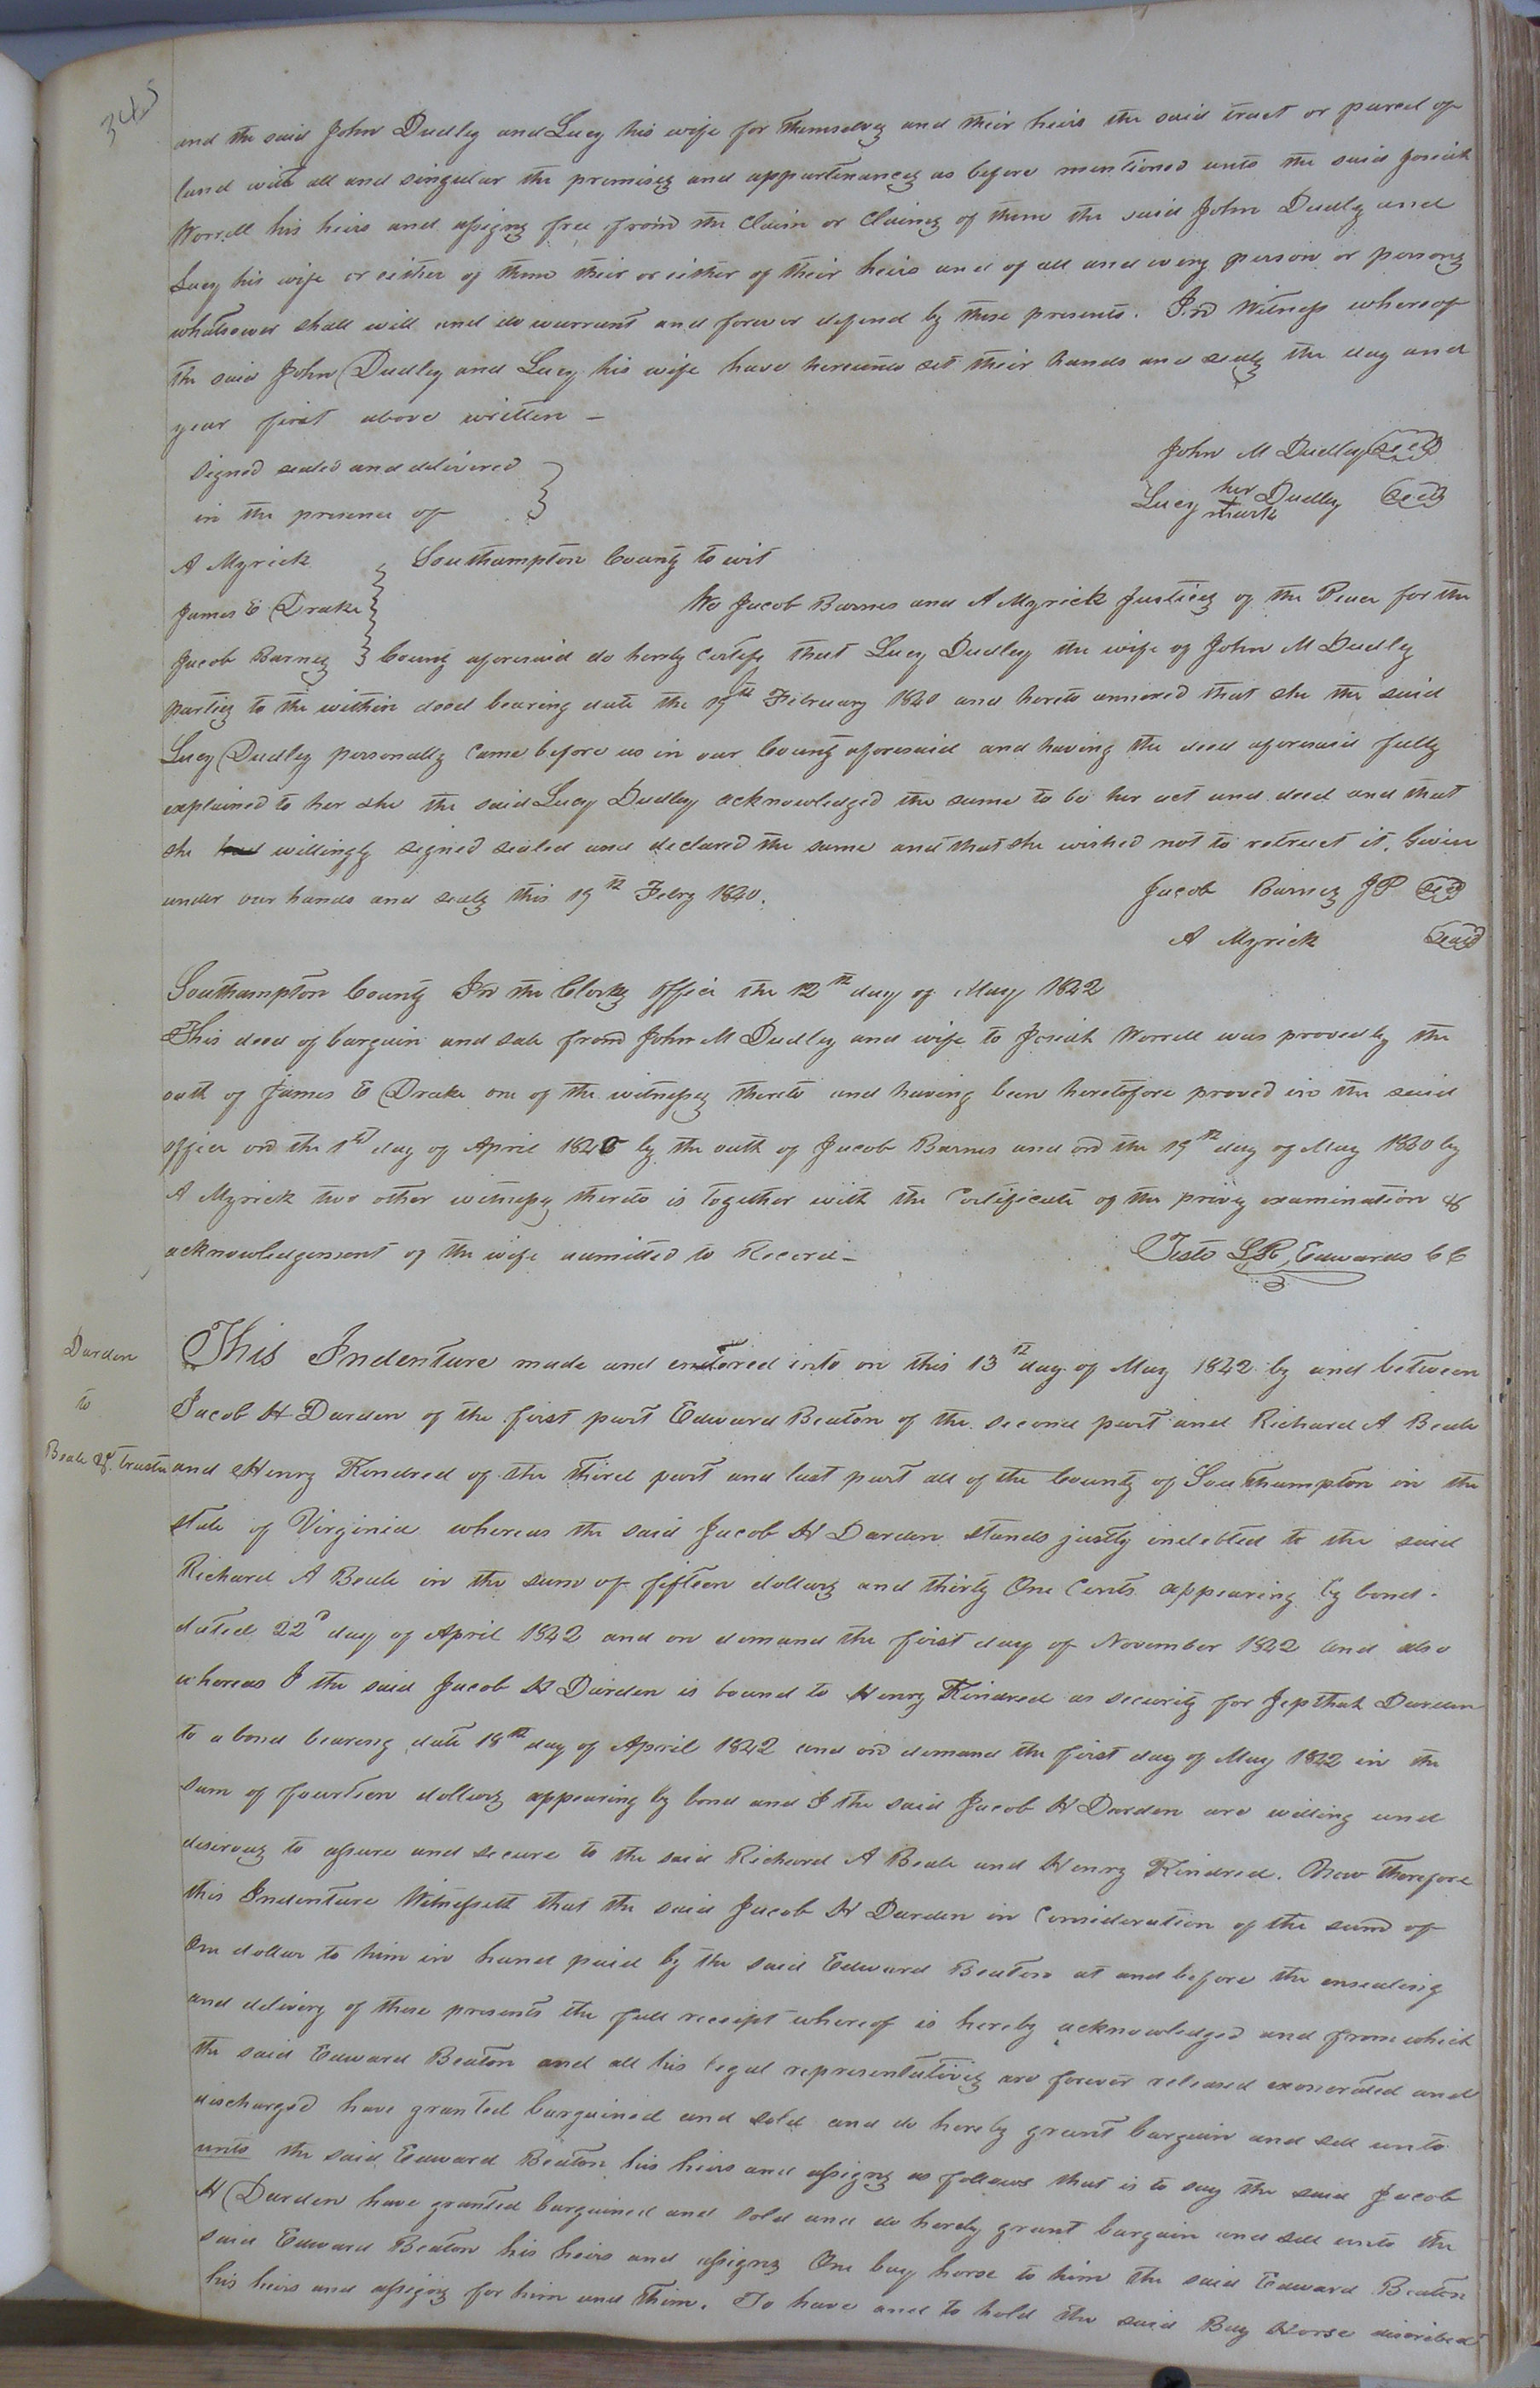 345
and the said John Dudley and Lucy his wife for themselves and their heirs the said tract or parcel of
land with all and singular the premises and appurtenances as before mentioned unto the said Josiah
Worrell his heirs and assigns free from the Claim or Claims of them the said John Dudley and
Lucy his wife or either of them their or either of their heirs and of all and every person or persons
whatsoever shall will and do warrant and forever defend by these presents. In Witness whereof
the said John Dudley and Lucy his wife have hereunto set their hands and seals the day and
year first above written –
Signed sealed and delivered
in the presence of
John M Dudley Seal
Lucy her mark Dudley Seal
A Myrick
James E Drake
Jacob Barnes
Southampton County to wit
We Jacob Barnes and A Myrick Justices of the Peace for the
County aforesaid do hereby certify that Lucy Dudley the wife of John M Dudley
parties to the within deed bearing date the 19th February 1840 and hereto annexed that she the said
Lucy Dudley personally came before us in our County aforesaid and having the deed aforesaid fully
explained to her she the said Lucy Dudley acknowledged the same to be her act and deed and that
she had willingly signed sealed and declared the same and that she wished not to retract it. Given
under our hands and seals this 19th Febry 1840.
Jacob Barnes JP Seal
A Myrick Seal
Southampton County In the Clerks Office the 12th day of May 1842
This deed of bargain and sale from John M Dudley and wife to Josiah Worrell was proved by the
oath of James E Drake one of the witnesses thereto and having been heretofore proved in the said
office on the 1st day of April 1840 by the oath of Jacob Barnes and on the 19th day of May 1840 by
A Myrick two other witnesses thereto is together with the Certificate of the privy examination &
acknowledgement of the wife admitted to Record –
Teste L R Edwards CC
Darden
to
Beale &c. trustee
This Indenture made and entered into on this 13th day of May 1842 by and between
Jacob H Darden of the first part Edward Beaton of the second part and Richard A Beale
and Henry Kindred of the third part and last part all of the County of Southampton in the
state of Virginia whereas the said Jacob H Darden stands justly indebted to the said
Richard A Beale in the sum of fifteen dollars and thirty One Cents appearing by bond
dated 22d day of April 1842 and on demand the first day of November 1842 and also
whereas I the said Jacob H Darden is bound to Henry Kindred as security for Jepthah Darden
to a bond bearing date 18th day of April 1842 and on demand the first day of May 1842 in the
sum of fourteen dollars appearing by bond and I the said Jacob H Darden are willing and
desirous to assure and secure to the said Richard A Beale and Henry Kindred. Now therefore
this Indenture Witnesseth that the said Jacob H Darden in Consideration of the sum of
One dollar to him in hand paid by the said Edward Beaton at and before the ensealing
and delivery of these presents the full receipt whereof is hereby acknowledged and from which
the said Edward Beaton and all his legal representatives are forever released exonerated and
discharged have granted bargained and sold and do hereby grant bargain and sell unto
unto the said Edward Beaton his heirs and assigns as follows that is to say the said Jacob
H Darden have granted bargained and sold and do hereby grant bargain and sell unto the
said Edward Beaton his heirs and assigns One bay horse to him the said Edward Beaton
his heirs and assigns for him and Them. To have and to hold the said Bay Horse discribed